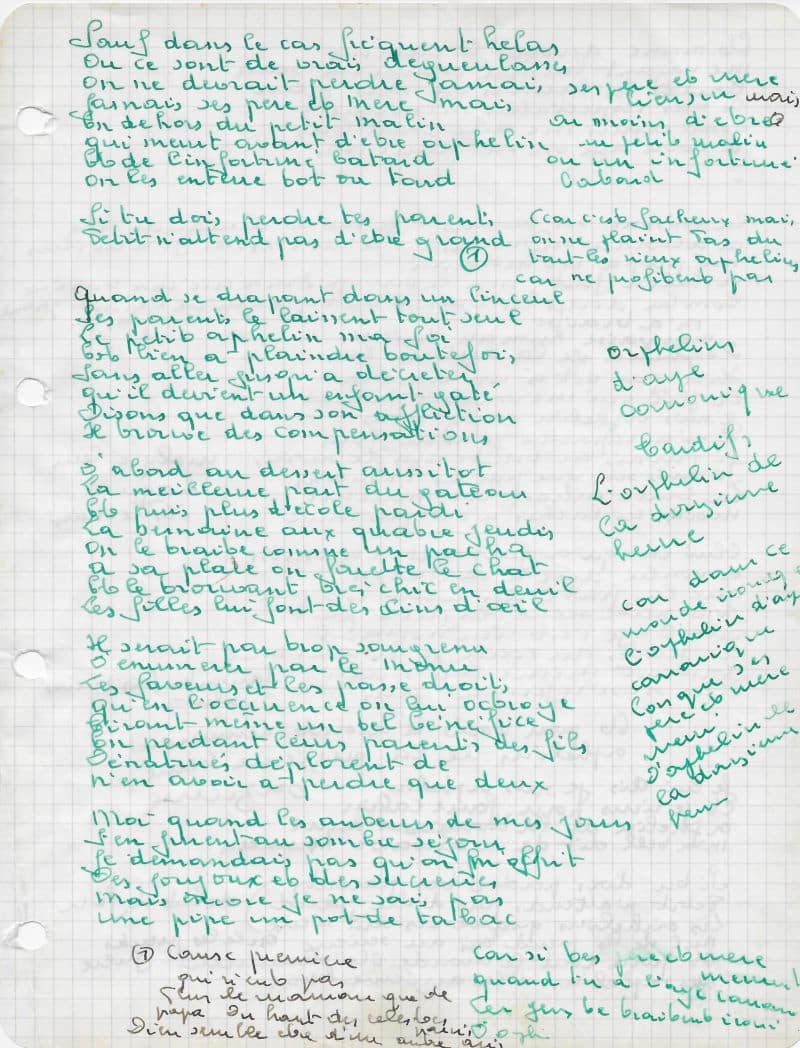 Sauf dans le cas fréquent helas
Ou ce sont de vrais degueulasses
On ne devrait perdre Jamais
Jamais ses pere et mere mais
En dehors du petit malin
qui meurt avant d'etre orphelin
Et de l'infortuné batard
On les enterre tot ou tard
ses pere et mere
bien sur mais
ou moins d'etre
un petit malin
ou un infortuné
batard
Si tu dois perdre tes parents
Petit n'attend pas d'etre grand
①
(car c'est facheux mais
on ne plaint pas du
tout les vieux orphelins
car ne profitent pas
Quand se drapant dans un linceul
Ses parents le laissent tout seul
Le petit orphelin ma foi
Est bien a plaindre toutefois
Sans aller jusqu'a décreter
qu'il devient un enfant gaté
Disons que dans son affliction
Il trouve des compensations
orphelins
d'age
canonique
tardifs
D'abord au dessert aussitot
La meilleure part du gateau
Et puis plus d'école pardi
La semaine aux quatre jeudis
On le traite comme un pacha
A sa place on fouette le chat
Et le trouvant tres chic en deuil
Les filles lui font des clins d'œil
L'orphelin de
la dernière
heure
car dans ce
monde
l'orphelin d'age
canonique
Lorsque ses
pere et mere
meurt
L'orphelin de
la dernière
heure
Il serait par trop saugrenu
D'enumerer par le menu
Les faveurs et les passe droits
qu'en l'occurence on lui octroye
Tirant meme un bel bénéfice
En perdant leurs parents des fils
Dénaturés déplorent de
n'en avoir a perdre que deux
Moi quand les auteurs de mes jours
S'en furent au sombre séjour
Je demandais pas qu'on m'offrit
Des joujoux et des sucreries
Mais encore je ne sais pas
Une pipe un pot de tabac
① Cause premiere
qui n'est pas
le maman que de
papa Du haut des celestes
Dieu semble etre d'un autre avis
car si tes pere et mere
meurent
quand tu a l'age canon
Les gens te traitent